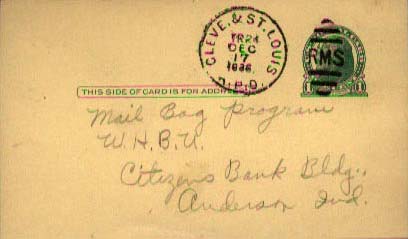 CLEVE. & ST. LOUIS
TR 24
DEC
17
1936
R.P.O.
RMS
THIS SIDE OF CARD IS FOR ADDRESS
Mail Bag Program
W.H.B.U.
Citizens Bank Bldg.,
Anderson Ind.